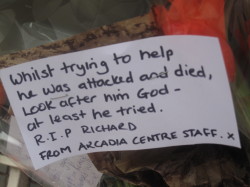 Whilst trying to help
he was attacked and died,
Look after him God -
at least he tried.
R.I.P RICHARD
FROM ARCADIA CENTRE STAFF. x